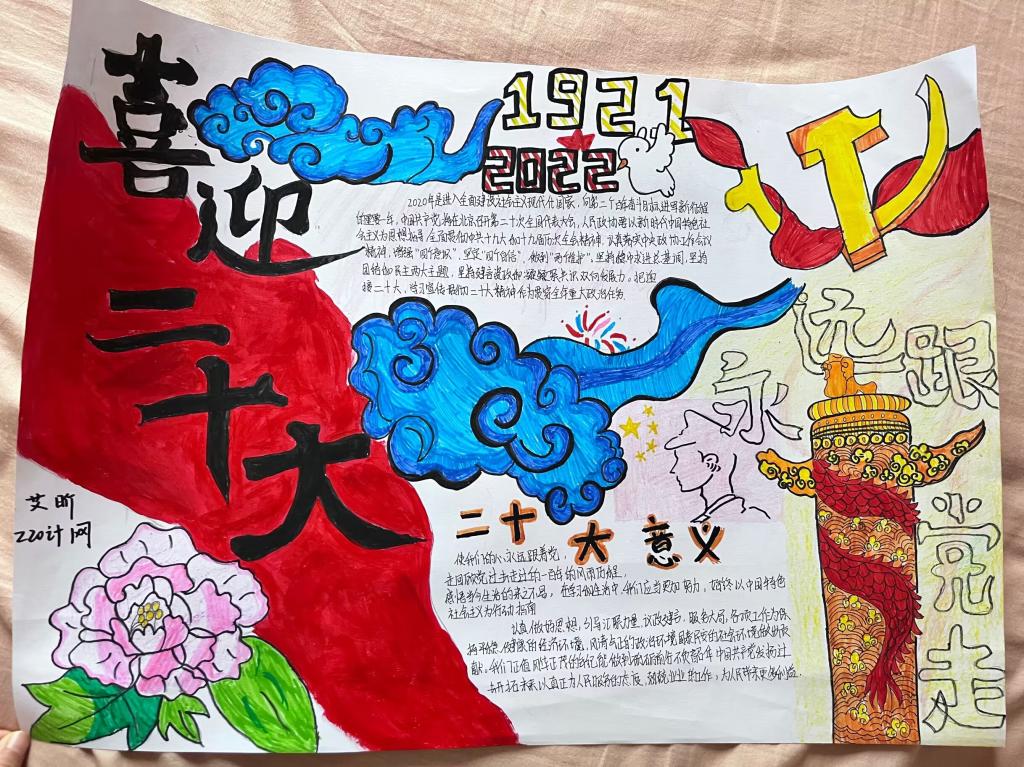 喜迎二十大
1921
2022
2020年是进入全面建设社会主义现代化国家，向第二个百年奋斗目标进军新征程
重要一年，中国共产党将在北京召开第二十次全国代表大会，人民政协要以新时代中国特色社
会主义为思想指导，全面贯彻中共十九大和十九届历次全会精神，认真落实中央政协工作会议
精神，增强“四个意识”，坚定“四个自信”，做到“两个维护”，坚持稳中求进总基调，坚持
团结和民主两大主题，坚持建言资政和凝聚共识双向发力。把迎
接二十大，学习宣传贯彻二十大精神作为贯穿全年重大政治任务
永远跟党走
艾昕
220计网
二十大意义
使我们的心永远跟着党，
走回顾党过去走过的一百年的风雨历程，
感悟当今生活的来之不易，在学习和生活中，我们应当更加努力，始终以中国特色
社会主义为行动指南
认真做好思想，引导汇聚力量，议政建言，服务大局，各项工作为保
持平稳健康的经济环境，风清气正的政治环境
献。我们正值风华正茂的年纪，能做到
开拓未来以真正为人民服务的态度，兢兢业业的工作，为人民带来更多利益。